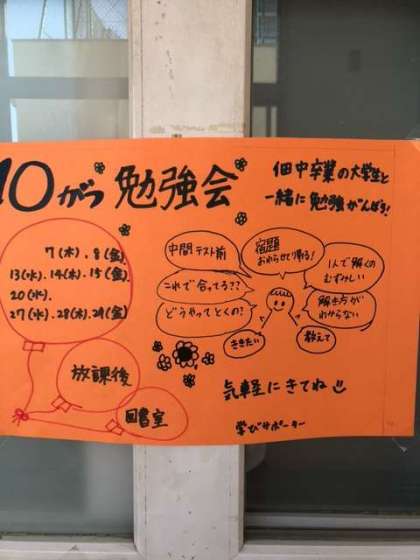 10がつ 勉強会
佃中卒業の大学生と
一緒に勉強がんばろ!
7(木)、8(金)
13(水)、14(木)、15(金)
20(水)、
27(水)、28(木)、29(金)
放課後
図書室
中間テスト前
宿題
おわらせて帰る!
1人で解くの
むずかしい
これで合ってる??
どうやってとくの?
解き方が
わからない
ききたい
教えて
気軽にきてね
学びサポーター